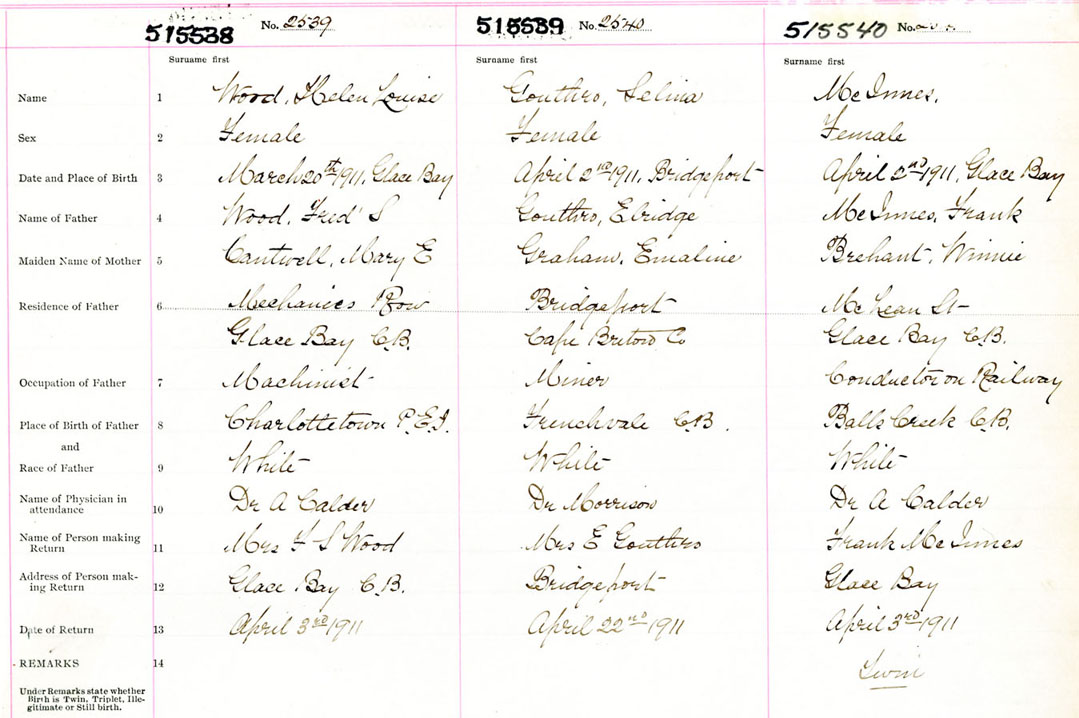 515538 No. 2539 515539 No. 2540 515540 No.
Surname first Surname first Surname first
Name 1 Wood, Helen Louise Gouthro, Selina McInnes,
Sex 2 Female Female Female
Date and Place of Birth 3 March 20th 1911, Glace Bay April 2nd 1911, Bridgeport April 2nd 1911, Glace Bay
Name of Father 4 Wood, Fred S Gouthro, Elbridge McInnes, Frank
Maiden Name of Mother 5 Cantwell, Mary E Graham, Emaline Brehant, Winnie
Residence of Father 6 Mechanics Row Bridgeport McLean St
Glace Bay C.B. Cape Breton Co Glace Bay C.B.
Occupation of Father 7 Machinist Miner Conductor on Railway
Place of Birth of Father 8 Charlottetown P.E.I. Frenchvale C.B. Balls Creek C.B.
and
Race of Father 9 White White White
Name of Physician in
attendance 10 Dr A Calder Dr Morrison Dr A Calder
Name of Person making
Return 11 Mrs F S Wood Mrs E Gouthro Frank McInnes
Address of Person mak-
ing Return 12 Glace Bay C.B. Bridgeport Glace Bay
Date of Return 13 April 3rd 1911 April 22nd 1911 April 3rd 1911
REMARKS 14 Twin
Under Remarks state whether
Birth is Twin, Triplet, Ille-
gitimate or Still birth.